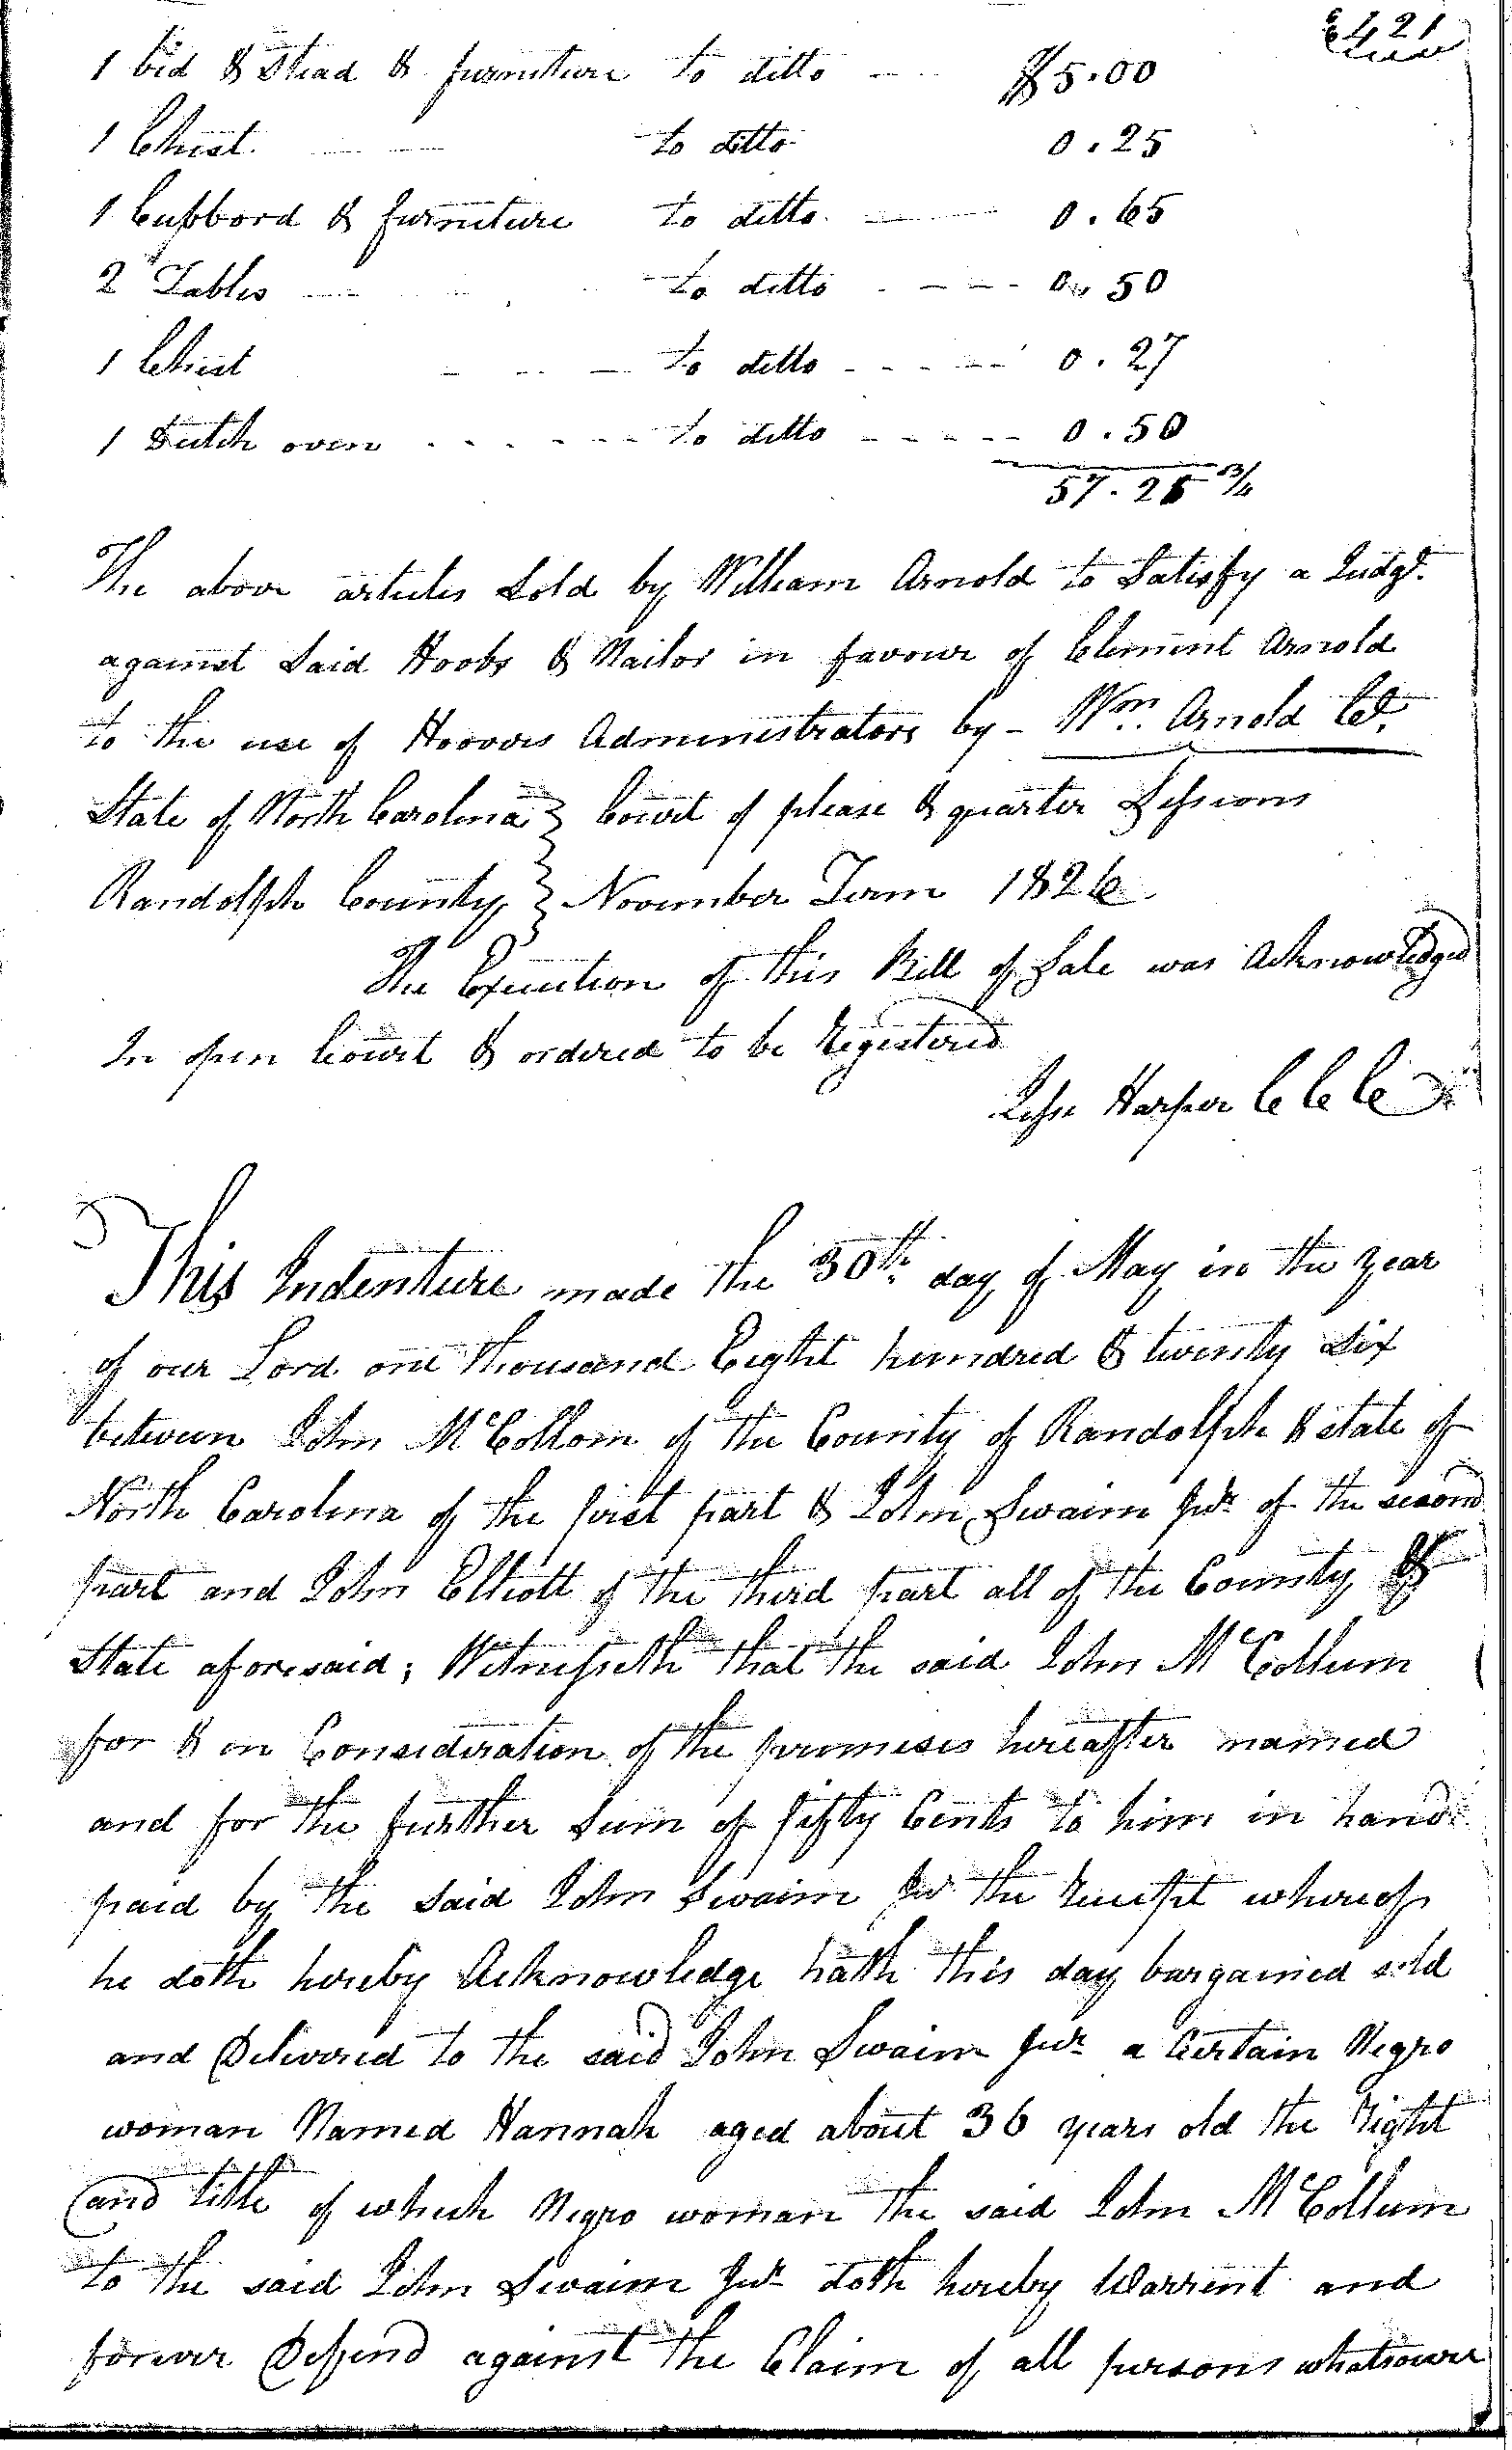 421
1 bed & Stead & furniture to ditto $5.00
1 Chest to ditto 0.25
1 Cupbord & furniture to ditto 0.65
2 Tables to ditto 0.50
1 Chest to ditto 0.27
1 Dutch oven to ditto 0.50
57.25 3/4
The above articles Sold by William Arnold to Satisfy a Judgt.
against Said Hoobs & Nailor in favour of Clement Arnold
to the use of Hoovers Administrators by - Wm. Arnold Ct.
State of North Carolina } Court of please & quarter Sessions
Randolph County } November Term 1826
The Execution of this Bill of Sale was Acknowledged
In open Court & ordered to be Registered
Jesse Harper C C C
This Indenture made the 30th day of May in the year
of our Lord one thousand Eight hundred & twenty Six
between John McCollom of the County of Randolph & state of
North Carolina of the first part & John Swaim Jur of the second
part and John Elliott of the third part all of the County &
State aforesaid; Witnesseth that the said John McCollum
for & in Consideration of the premises hereafter named
and for the further Sum of fifty Cents to him in hand
paid by the Said John Swaim Jur the receipt whereof
he doth hereby Acknowledge hath this day bargained sold
and Delivered to the said John Swaim Jur a Certain Negro
woman Named Hannah aged about 36 years old the Right
and title of which Negro woman the said John McCollum
to the said John Swaim Jur doth hereby Warrent and
forever Deffend against the Claim of all persons whatsoever